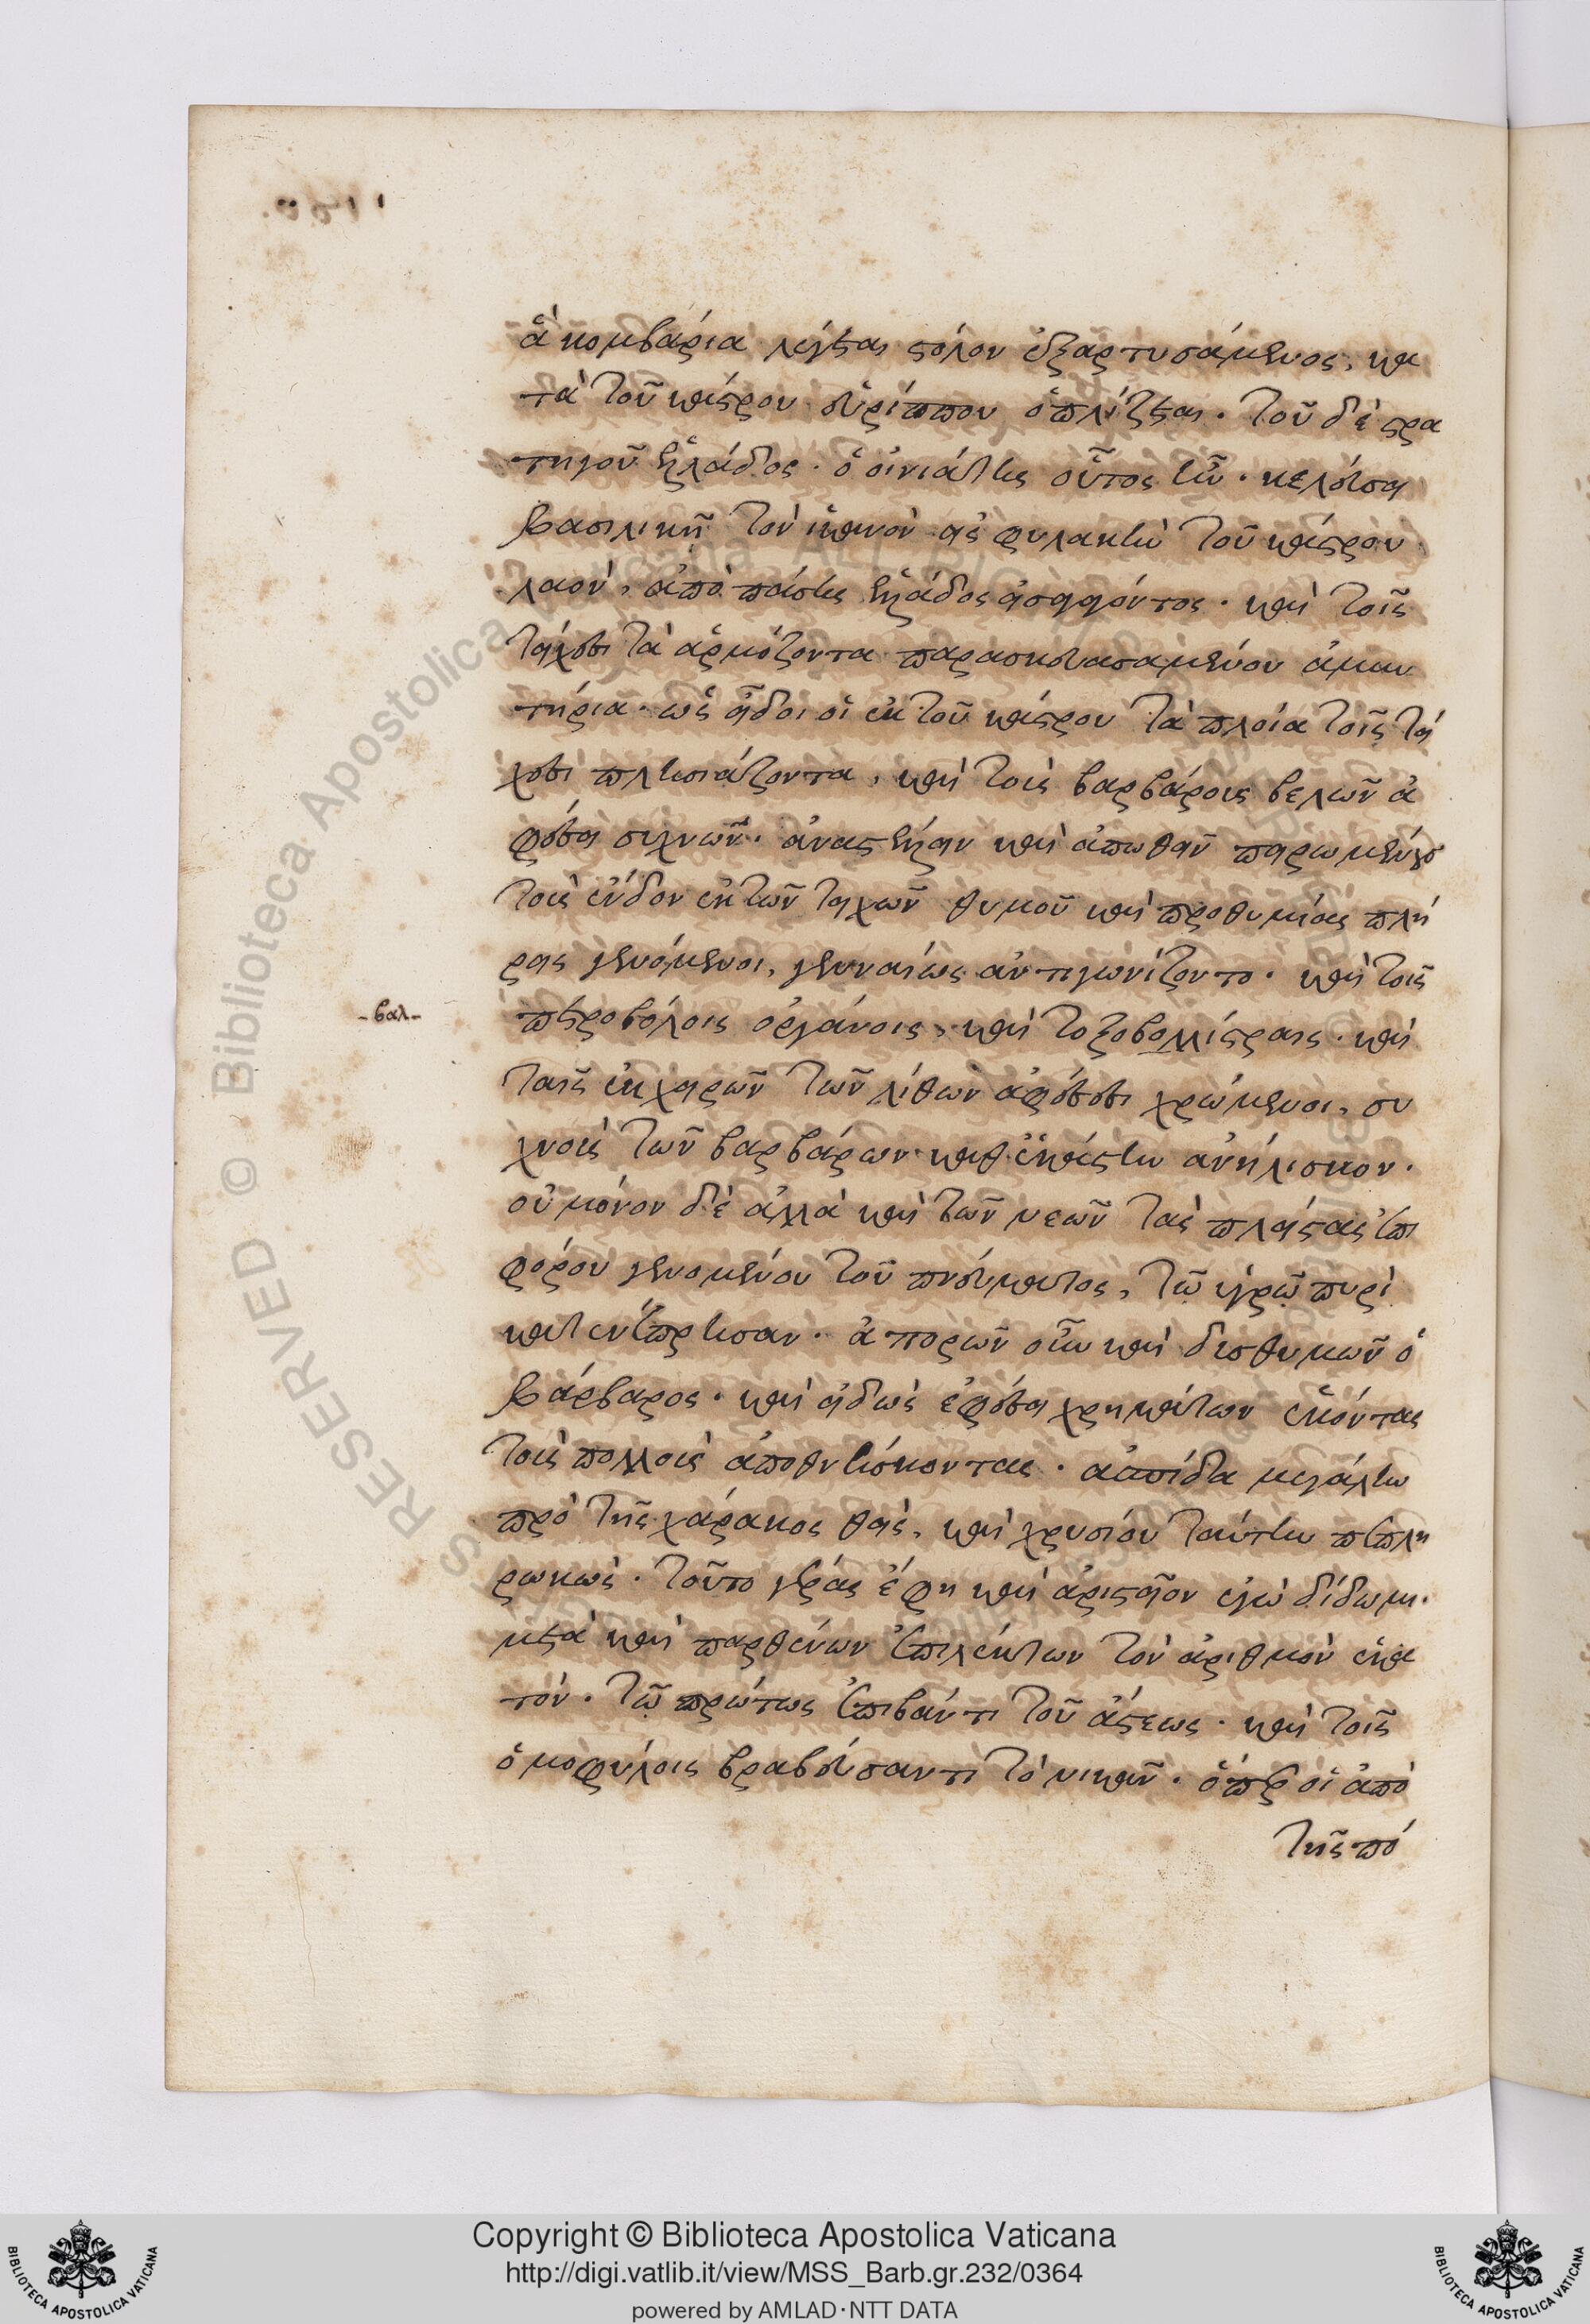 ἃ κομβάρια λέγεται στόλον ἐξαρτυσάμενος, κα
τὰ τοῦ κάστρου εὐρίππου ὁπλίζεται. τοῦ δὲ στρα
τηγοῦ ἑλλάδος. ὁ οἰνιάτης οὗτος ἦν. κελεύσει
βασιλικῇ τὸν ἱκανὸν εἰς φυλακὴν τοῦ κάστρου
λαὸν, ἀπὸ πάσης ἑλλάδος εἰσαγαγόντος. καὶ τοῖς
τείχεσι τὰ ἁρμόζοντα παρασκευασαμένου ἀμυν
τήρια. ὡς εἶδον οἱ ἐκ τοῦ κάστρου τὰ πλοῖα τοῖς τεί
χεσι πλησιάζοντα, καὶ τοὺς βαρβάρους βελῶν ἀ
φέσει συχνῶν. ἀναστέλλειν καὶ ἀπωθεῖν πειρωμένους
τοὺς ἔνδον ἐκ τῶν τειχῶν θυμοῦ καὶ προθυμίας πλή
ρεις γενόμενοι, γενναίως ἀντηγωνίζοντο. καὶ τοῖς
-βαλ-
πετροβόλοις ὀργάνοις, καὶ τοξοβολλίστραις. καὶ
ταῖς ἐκ χειρῶν τῶν λίθων ἀφέσεσι χρώμενοι, συ
χνοὺς τῶν βαρβάρων καθ' ἑκάστην ἀνήλισκον.
οὐ μόνον δὲ ἀλλὰ καὶ τῶν νεῶν τὰς πλείστας ἐπι
φόρου γενομένου τοῦ πνεύματος, τῷ ὑγρῷ πυρὶ
κατενέπρησαν. ἀπορῶν οὖν καὶ δυσθυμῶν ὁ
βάρβαρος. καὶ εἰδὼς ἐφέσει χρημάτων ἑκόντας
τοὺς πολλοὺς ἀποθνήσκοντας. ἀσπίδα μεγάλην
πρὸ τῆς χάρακος θεὶς, καὶ χρυσίου ταύτην πεπλη
ρωκὼς. τοῦτο γέρας ἔφη καὶ ἀριστεῖον ἐγὼ δίδωμι.
μετὰ καὶ παρθένων ἐπιλέκτων τὸν ἀριθμὸν ἑκα
τόν. τῷ πρώτως ἐπιβάντι τοῦ ἄστεως. καὶ τοῖς
ὁμοφύλοις βραβεύσαντι τὸ νικᾶν. ὅπερ οἱ ἀπὸ
τῆς πό
Copyright © Biblioteca Apostolica Vaticana
http://digi.vatlib.it/view/MSS_Barb.gr.232/0364
powered by AMLAD·NTT DATA
BIBLIOTECA APOSTOLICA VATICANA
BIBLIOTECA APOSTOLICA VATICANA